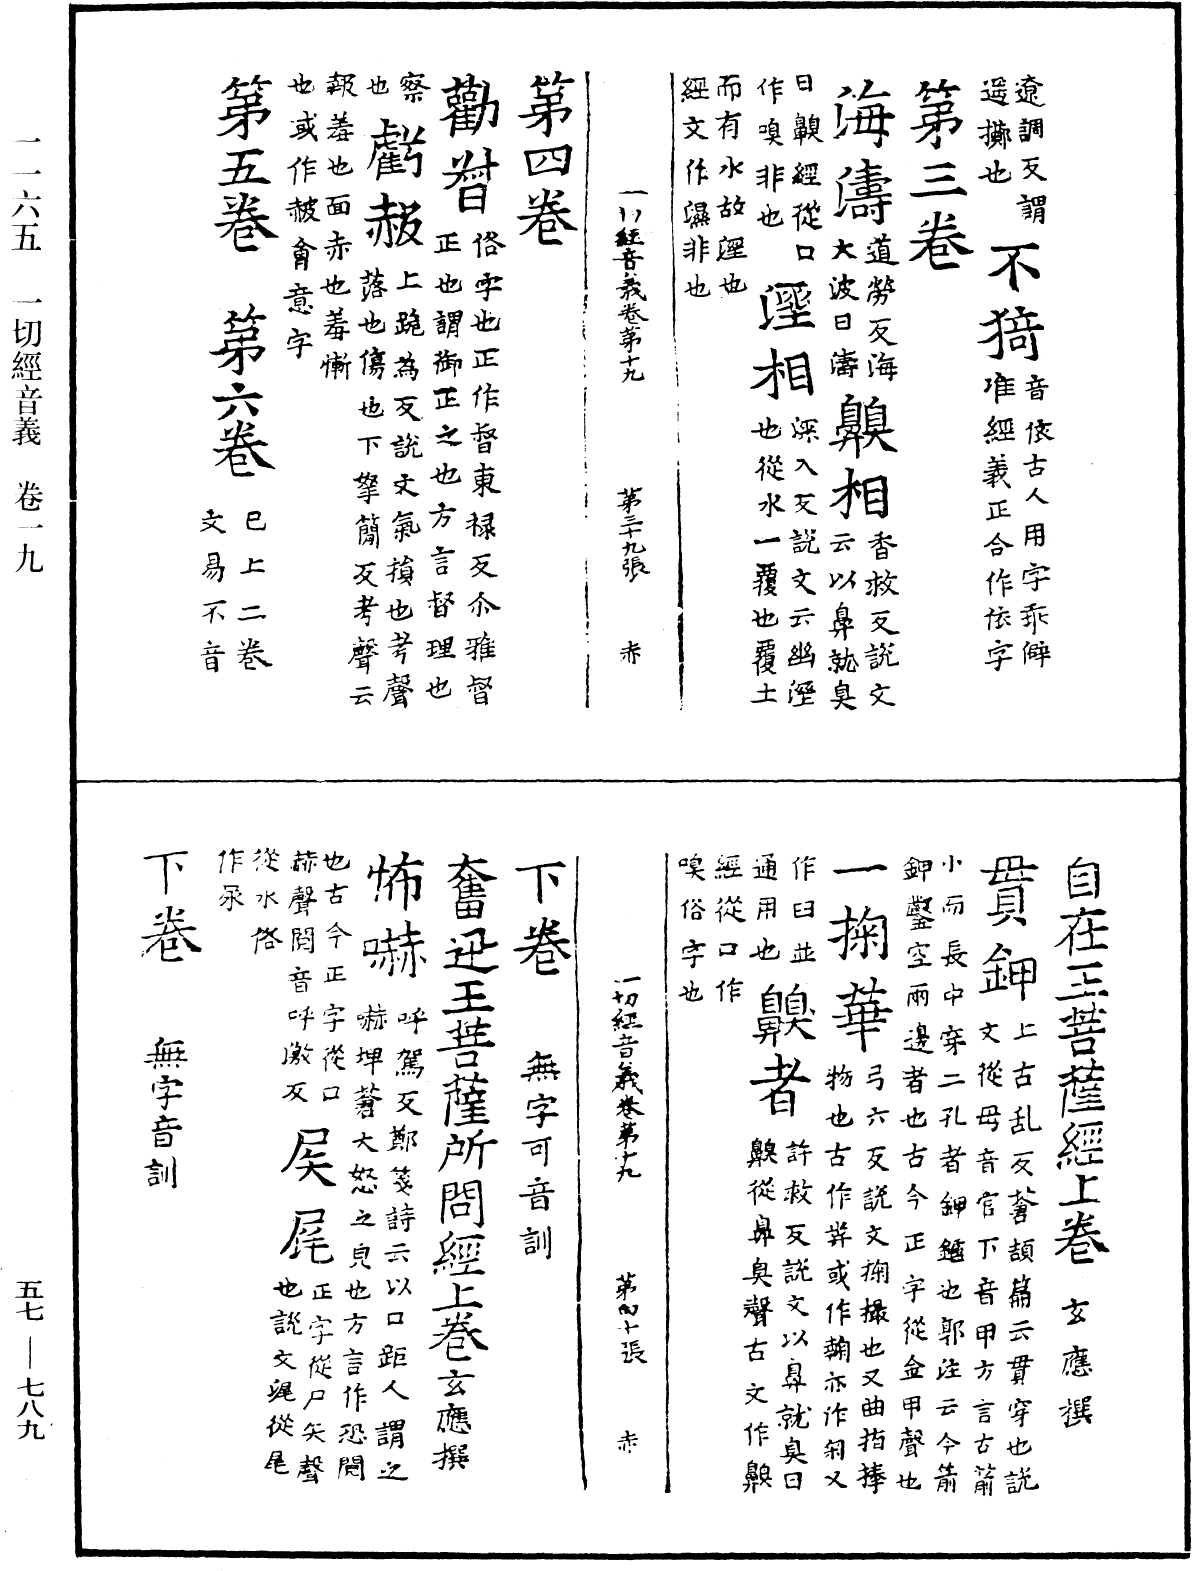 一一六五　一切經音義　卷一九
遼調反謂
遥擲也　不猗　音依古人用字乖僻
准經義正合作依字
第三卷
海濤　道勞反海
大波曰濤　齅相　香救反說文
云以鼻就臭
曰齅經從口
作嗅非也　溼相　深入反說文云幽溼
也從水一覆也覆土
而有水故溼也
經文作濕非也
一切經音義卷第十九　第三十九張　赤
第四卷
勸督　俗字也正作督東祿反尒雅督
正也謂御正之也方言督理也
察
也　虧赧　上跪為反說文氣損也考聲
落也傷也下拏簡反考聲云
赧羞也面赤也羞慚
也或作赦會意字
第五卷　第六卷　已上二卷
文易不音
自在王菩薩經上卷　玄應撰
貫鉀　上古乱反蒼頡篇云貫穿也說
文從毌音官下音甲方言古箭
小而長中穿二孔者鉀鑪也郭注云今箭
鉀鑿空兩邊者也古今正字從金甲聲也
一掬華　弓六反說文掬撮也又曲指捧
物也古作𦥑或作䩭亦作匊又
作臼並
通用也　齅者　許救反說文以鼻就臭曰
齅從鼻臭聲古文作齅
經從口作
嗅俗字也
一切經音義卷第十九　第四十張　赤
下卷　無字可音訓
奮迅王菩薩所問經上卷　玄應撰
怖嚇　呼駕反鄭箋詩云以口距人謂之
嚇埤蒼大怒之皃也方言作恐䦧
也古今正字從口
赫聲䦧音呼激反　屎尾　正字從尸矢聲
也說文𡲕從尾
從水俗
作尿
下卷　無字音訓
五七—七八九